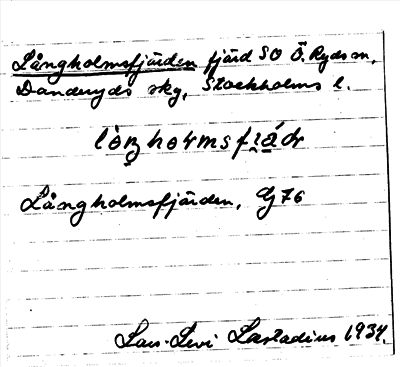 Långholmsfjärden fjärd SO Ö. Ryds sn,
Danderyds skg, Stockholms l.
Långholmsfjärden, Gj 76
Lars-Levi Læstadius 1934.